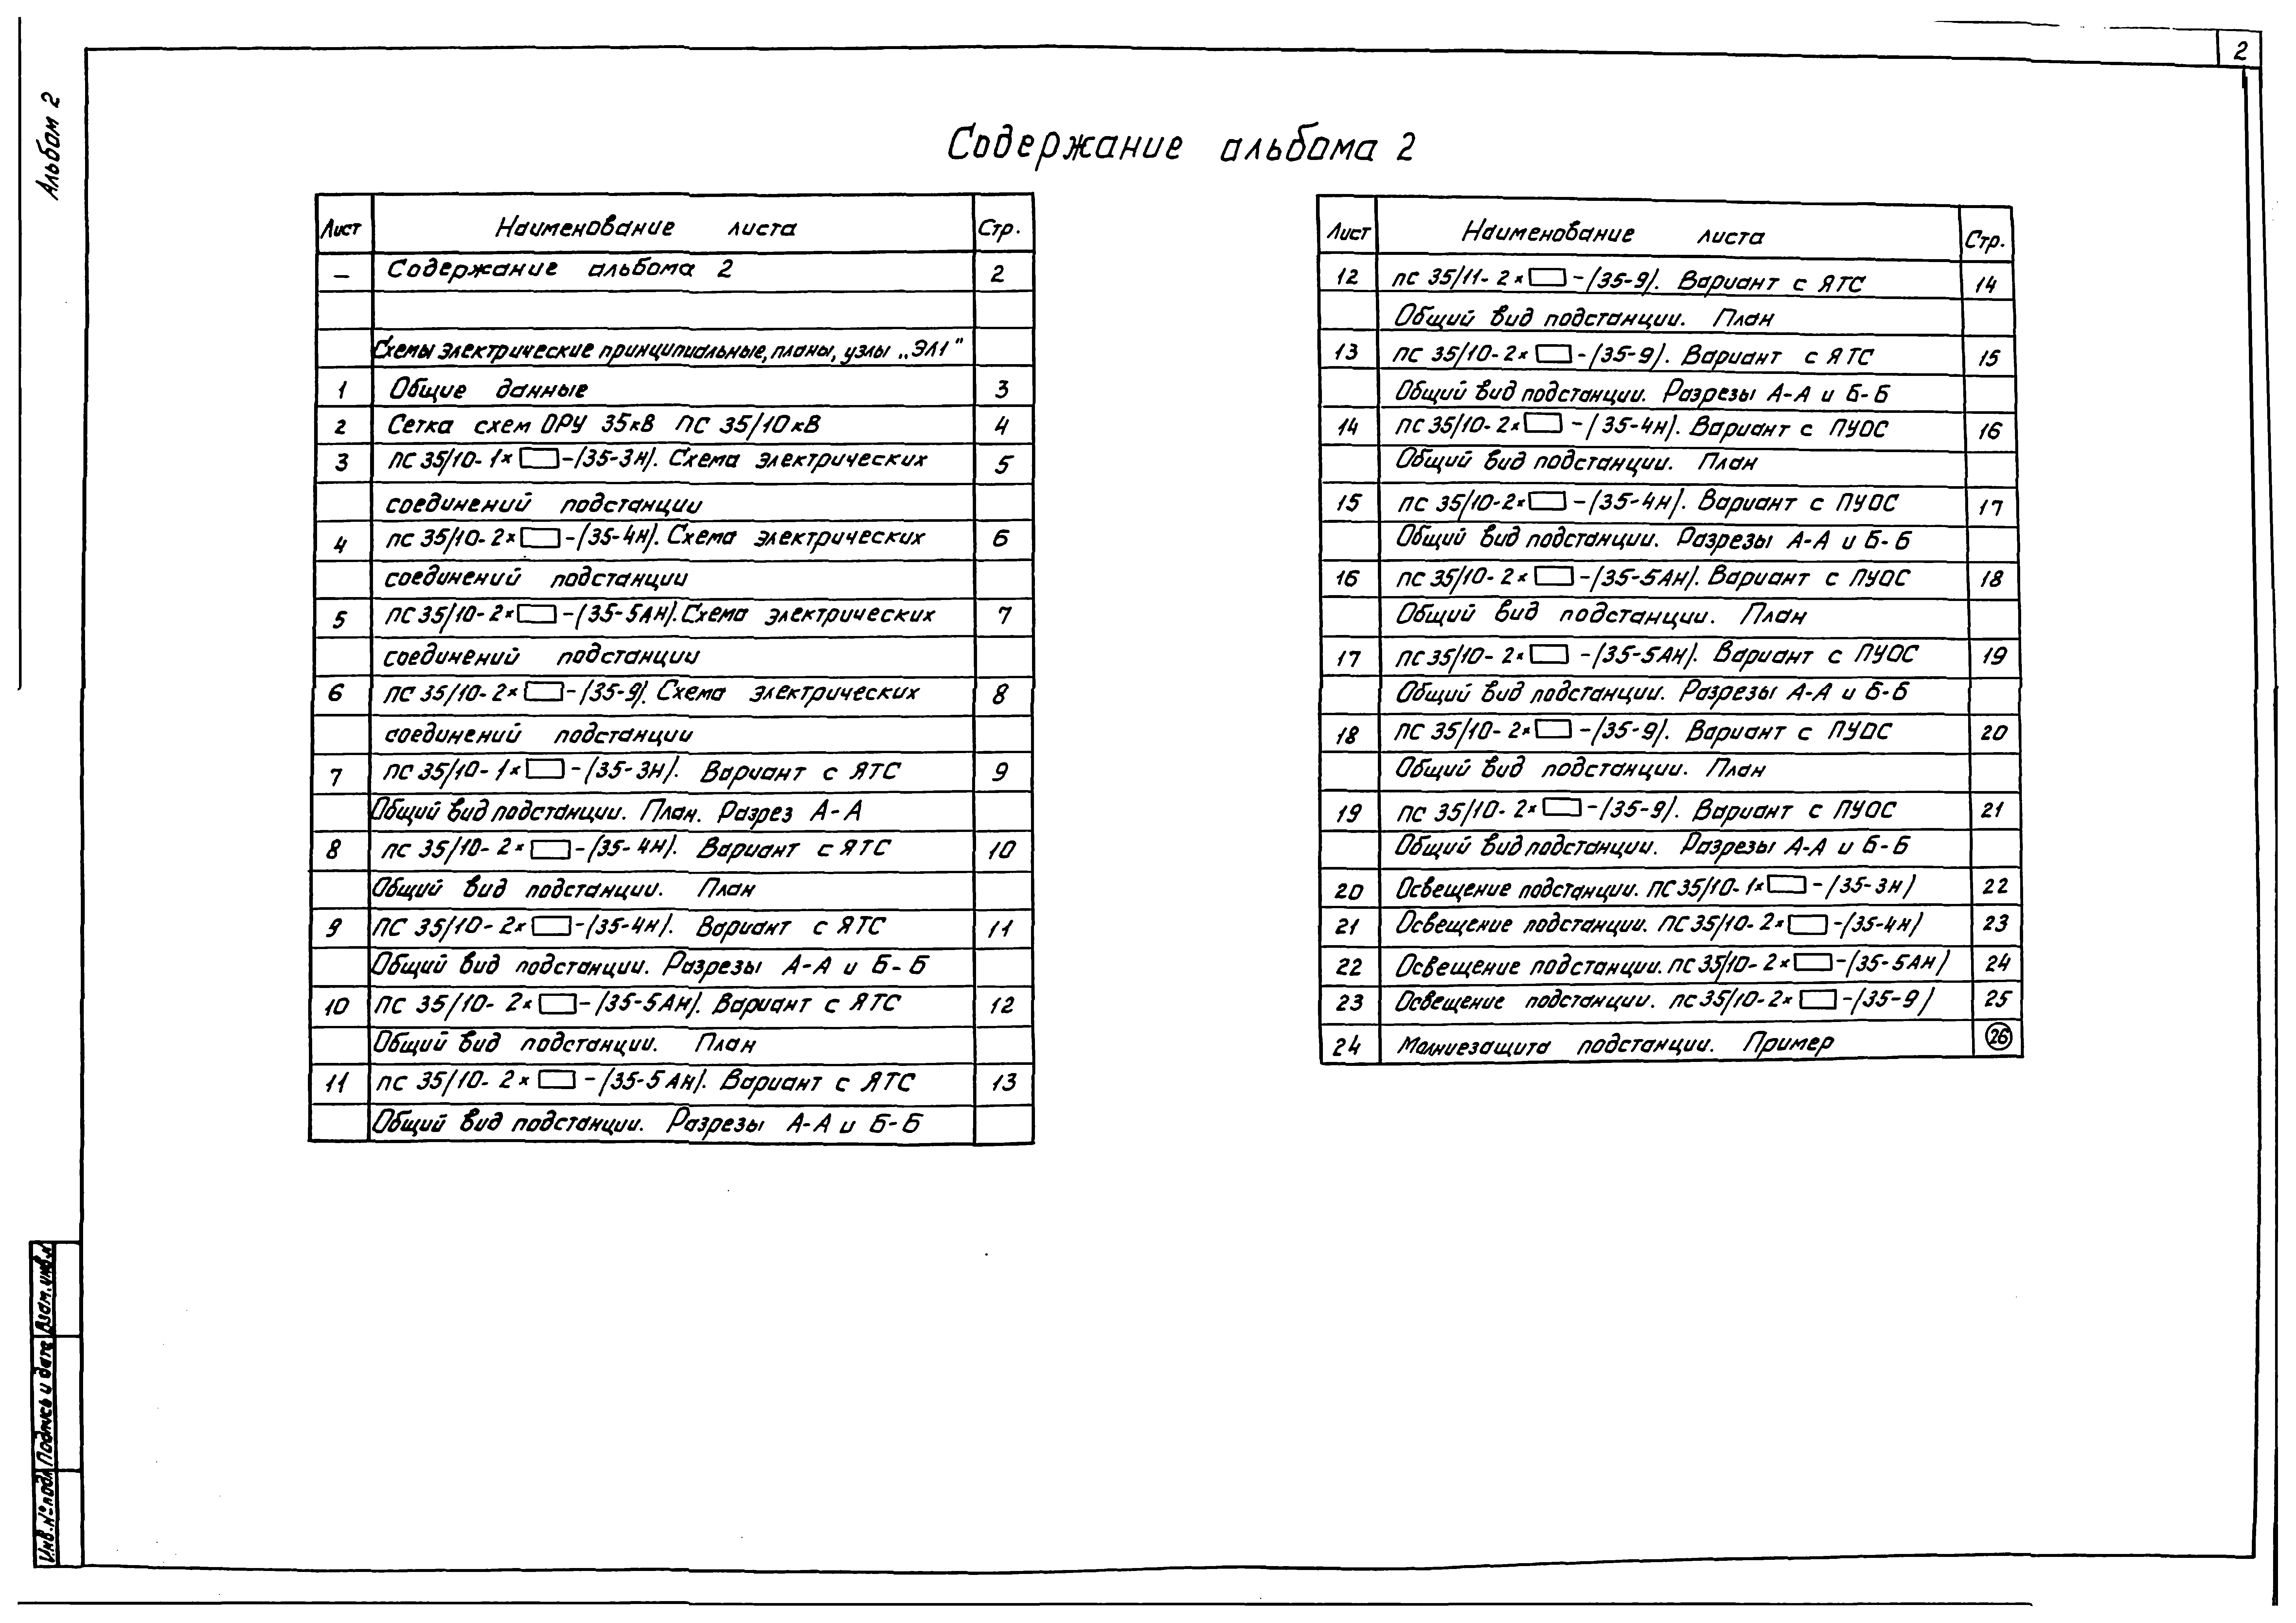 2
Альбом 2
Содержание альбома 2
Лист Наименование листа Стр.
— Содержание альбома 2 2
Схемы электрические принципиальные, планы, узлы „ЭЛ1"
1 Общие данные 3
2 Сетка схем ОРУ 35кВ ПС 35/10кВ 4
3 ПС 35/10-1×▭-(35-3Н). Схема электрических 5
соединений подстанции
4 ПС 35/10-2×▭-(35-4Н). Схема электрических 6
соединений подстанции
5 ПС 35/10-2×▭-(35-5АН). Схема электрических 7
соединений подстанции
6 ПС 35/10-2×▭-(35-9). Схема электрических 8
соединений подстанции
7 ПС 35/10-1×▭-(35-3Н). Вариант с ЯТС 9
Общий вид подстанции. План. Разрез А-А
8 ПС 35/10-2×▭-(35-4Н). Вариант с ЯТС 10
Общий вид подстанции. План
9 ПС 35/10-2×▭-(35-4Н). Вариант с ЯТС 11
Общий вид подстанции. Разрезы А-А и Б-Б
10 ПС 35/10-2×▭-(35-5АН). Вариант с ЯТС 12
Общий вид подстанции. План
11 ПС 35/10-2×▭-(35-5АН). Вариант с ЯТС 13
Общий вид подстанции. Разрезы А-А и Б-Б
Лист Наименование листа Стр.
12 ПС 35/11-2×▭-(35-9). Вариант с ЯТС 14
Общий вид подстанции. План
13 ПС 35/10-2×▭-(35-9). Вариант с ЯТС 15
Общий вид подстанции. Разрезы А-А и Б-Б
14 ПС 35/10-2×▭-(35-4Н). Вариант с ПУОС 16
Общий вид подстанции. План
15 ПС 35/10-2×▭-(35-4Н). Вариант с ПУОС 17
Общий вид подстанции. Разрезы А-А и Б-Б
16 ПС 35/10-2×▭-(35-5АН). Вариант с ПУОС 18
Общий вид подстанции. План
17 ПС 35/10-2×▭-(35-5АН). Вариант с ПУОС 19
Общий вид подстанции. Разрезы А-А и Б-Б
18 ПС 35/10-2×▭-(35-9). Вариант с ПУОС 20
Общий вид подстанции. План
19 ПС 35/10-2×▭-(35-9). Вариант с ПУОС 21
Общий вид подстанции. Разрезы А-А и Б-Б
20 Освещение подстанции. ПС 35/10-1×▭-(35-3Н) 22
21 Освещение подстанции. ПС 35/10-2×▭-(35-4Н) 23
22 Освещение подстанции. ПС 35/10-2×▭-(35-5АН) 24
23 Освещение подстанции. ПС 35/10-2×▭-(35-9) 25
24 Молниезащита подстанции. Пример 26
Инв. № подл. Подпись и дата Взам. инв. №